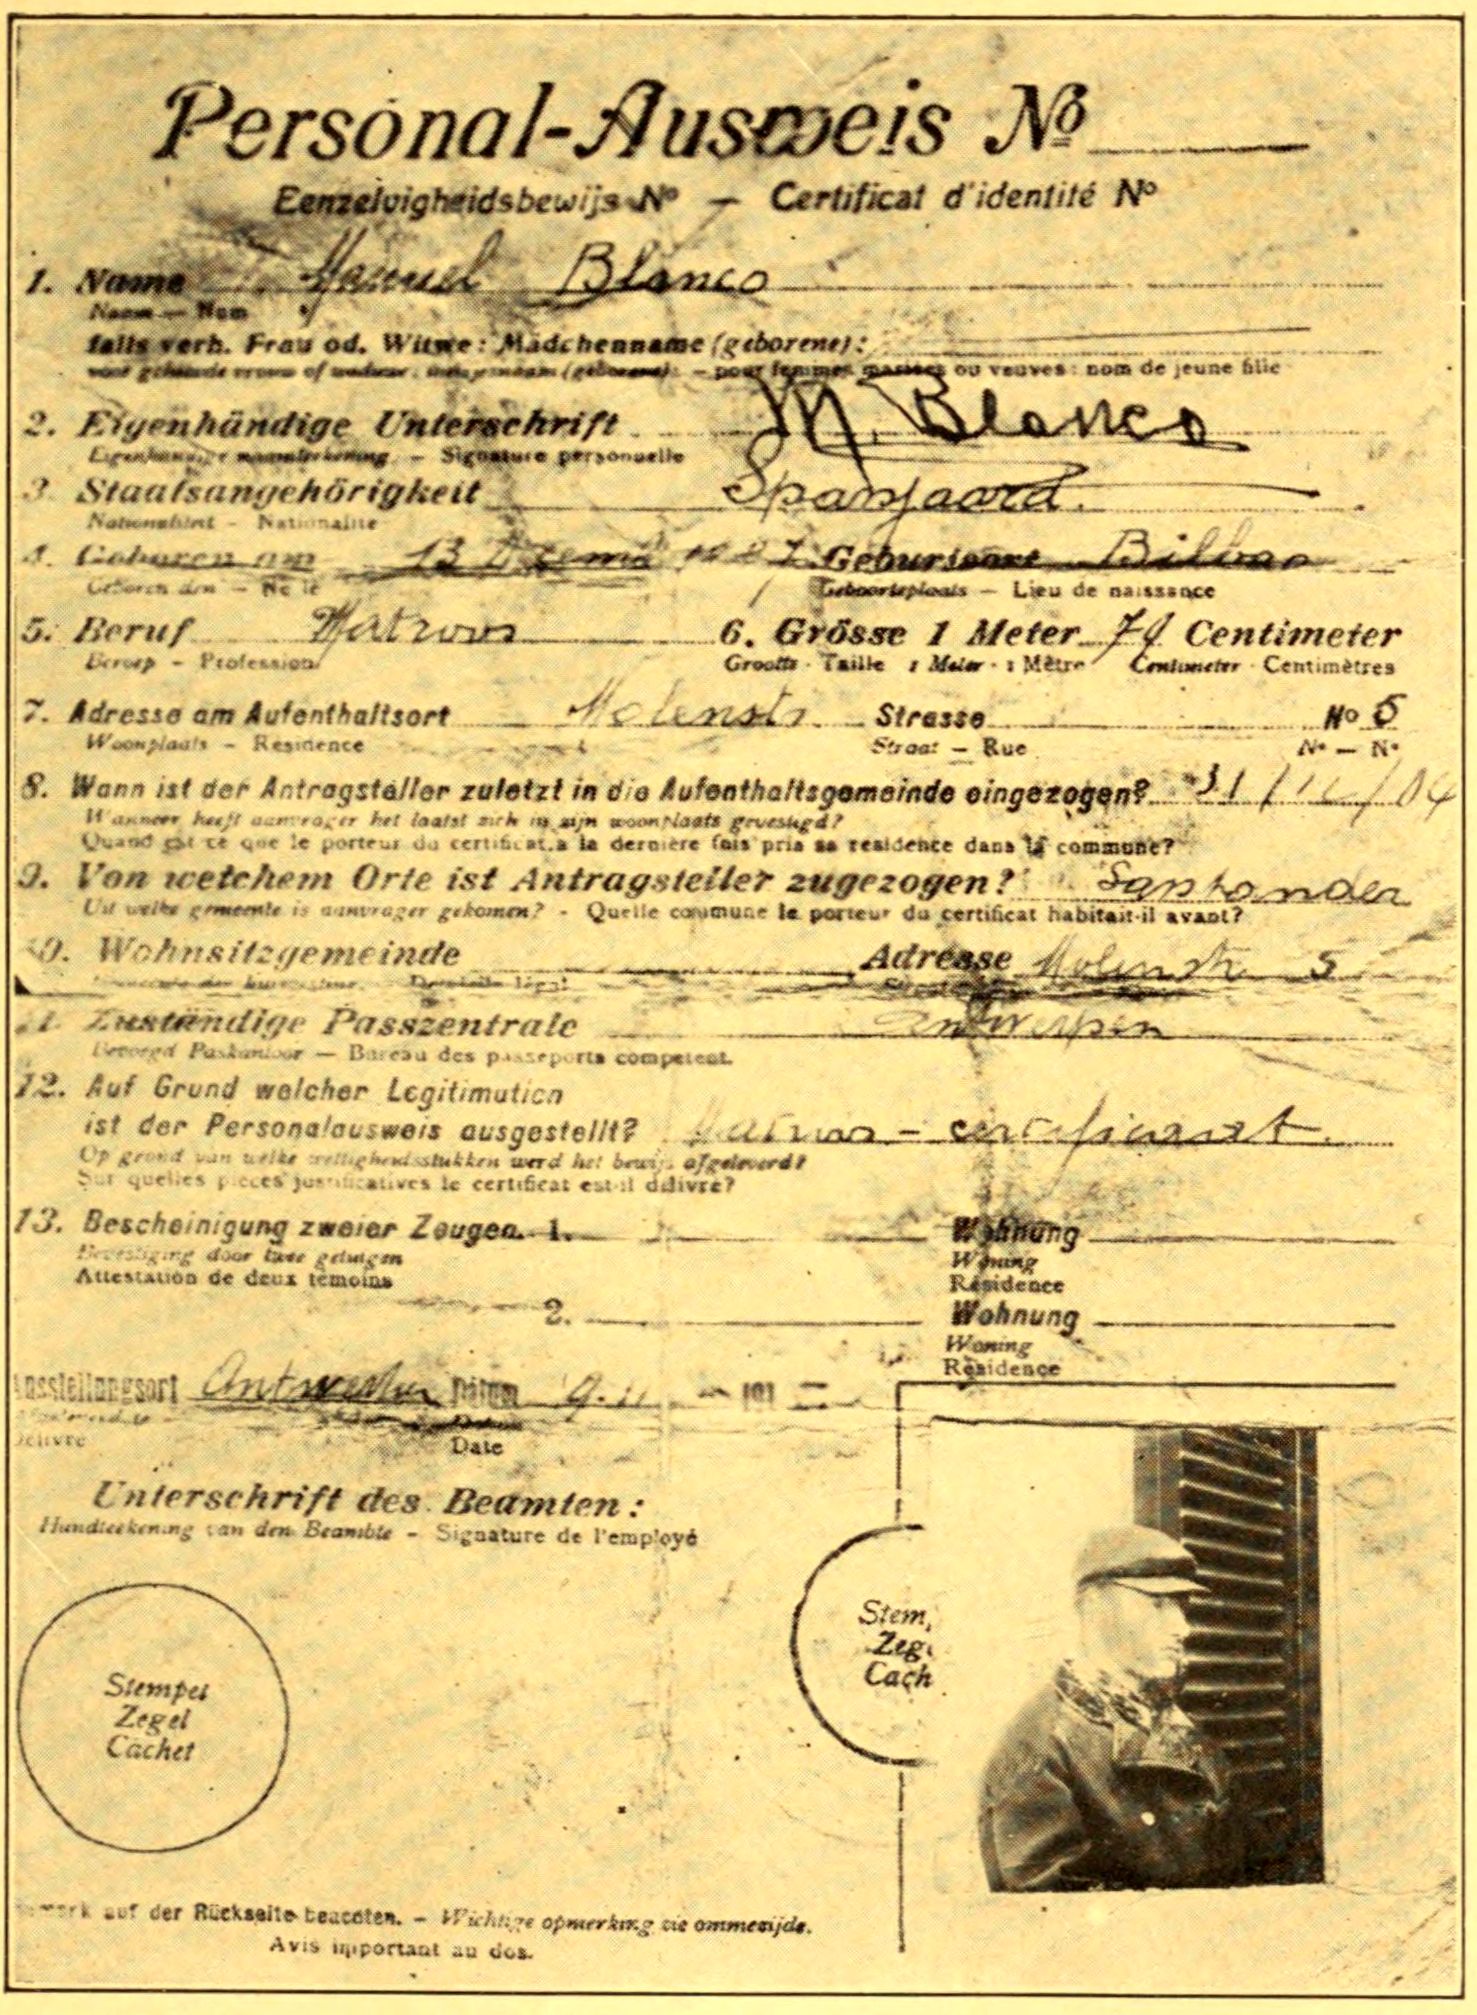 Personal-Ausweis Nº
Eenzelvigheidsbewijs Nº — Certificat d'identité Nº
1. Name Manuel Blanco
Naam — Nom
falls verh. Frau od. Witwe: Mädchenname (geborene):
pour femmes mariées ou veuves: nom de jeune fille
2. Eigenhändige Unterschrift M. Blanco
Eigenhandige – Signature personnelle
3. Staatsangehörigkeit Spanjaard.
Nationaliteit – Nationalité
4. Geboren am 13 Geburtsort Bilbao
Geboren den — Né le Geboorteplaats — Lieu de naissance
5. Beruf Matroos 6. Grösse 1 Meter Centimeter
Beroep – Profession Grootte · Taille 1 Meter · 1 Mètre Centimeter · Centimètres
7. Adresse am Aufenthaltsort Molenstr. Strasse No 5
Woonplaats – Résidence Straat — Rue Nº — Nº
8. Wann ist der Antragsteller zuletzt in die Aufenthaltsgemeinde eingezogen? 31/
Wanneer heeft aanvrager het laatst zich in zijn woonplaats gevestigd?
Quand est ce que le porteur du certificat a la dernière fois pris sa residence dans la commune?
9. Von welchem Orte ist Antragsteller zugezogen? Santander
Uit welke gemeente is aanvrager gekomen? - Quelle commune le porteur du certificat habitait-il avant?
10. Wohnsitzgemeinde Adresse Molenstr. 5
Domicile légal
11. Zuständige Passzentrale Antwerpen
Bevoegd Paskantoor — Bureau des passeports compétent.
12. Auf Grund welcher Legitimation
ist der Personalausweis ausgestellt? Matroos - certificaat.
Op grond van welke wettigheidsstukken werd het bewijs afgeleverd?
Sur quelles pièces justificatives le certificat est-il délivré?
13. Bescheinigung zweier Zeugen. 1. Wohnung
Bevestiging door twee getuigen Woning
Attestation de deux témoins Résidence
2. Wohnung
Woning
Résidence
Ausstellungsort Antwerpen Datum 9. 11 191
Délivré Date
Unterschrift des Beamten:
Handteekening van den Beambte – Signature de l'employé
Stem
Zeg
Cach
Stempel
Zegel
Cachet
auf der Rückseite beachten. – Wichtige opmerking zie ommezijde.
Avis important au dos.